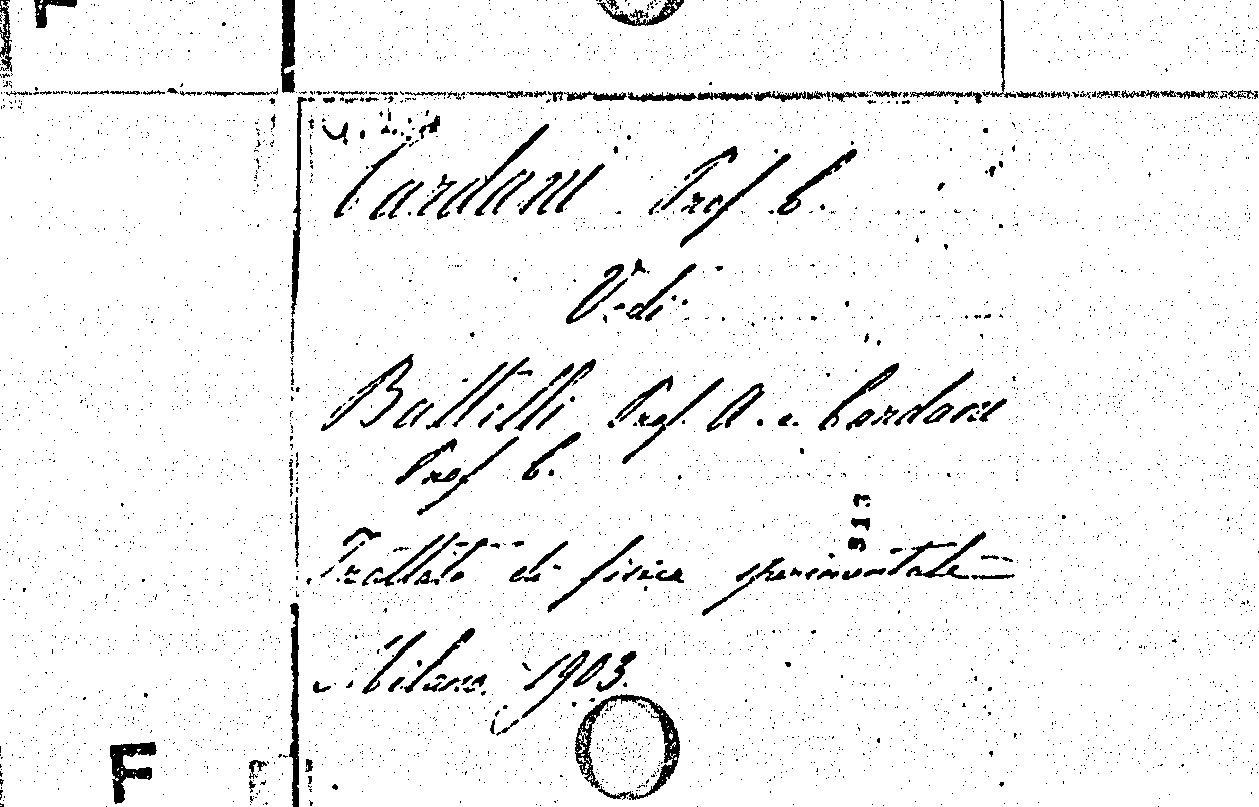 F
Cardani Prof C.
Vedi
Battelli Prof. A. e. Cardani
Prof C.
513
Trattato di fisica sperimentale
Milano. 1903.
F